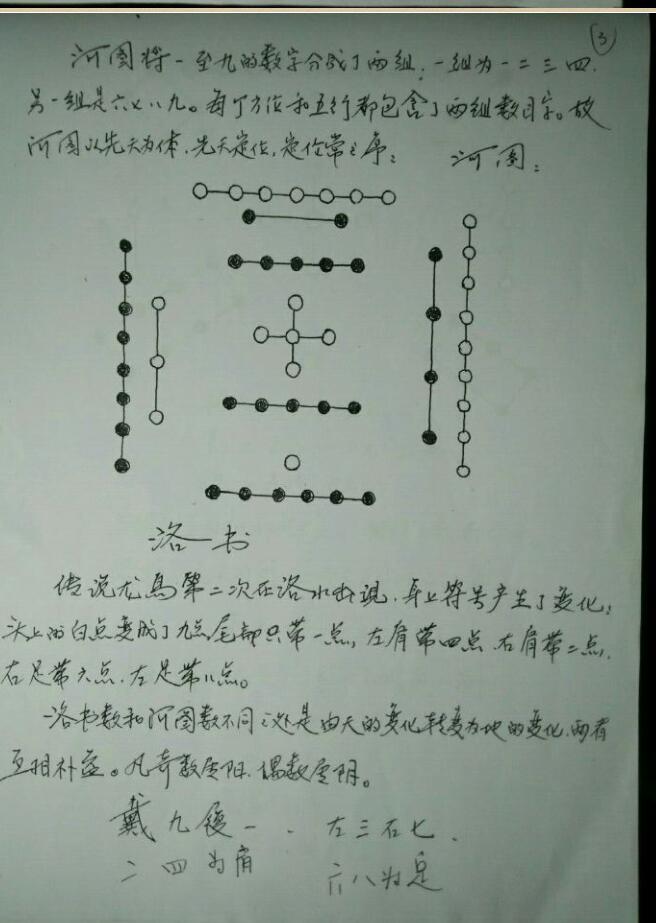 3
河图将一至九的数字分成了两组:一组为一二三四.
另一组是六七八九。每个方位和五行都包含了两组数目字。故
河图以先天为体.先天定位,定位常之序: 河图:
洛一书
传说龙馬第二次在洛水出现.身上符号产生了变化;
头上的白点变成了九点尾部只带一点,左肩带四点.右肩带二点.
右足带六点.左足带八点。
洛书数和河图数不同之处是由天的变化转变为地的变化.两者
互相补益。凡奇数变阳.偶数变阴。
戴九履一. 左三右七.
二四为肩 六八为足